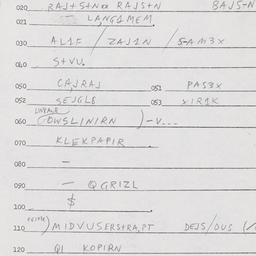 020 RAJ+S+N RAJS+N BAJS-N
021 — LANGAMEM
030 AL1F / ZAJ1N / 5AM3X
040 S+VU.
050 CAJRAJ 051 PAS3X
052 SEJGL6 053 X1R1K
060 OWSLINIRN ) -V...
070 KLEKPAPIR
080 —
090 — QGRIZL
100 $
110 ) MIDVUSERSTRA,PT DEJS/OUS
120 Q1 KOPIRN